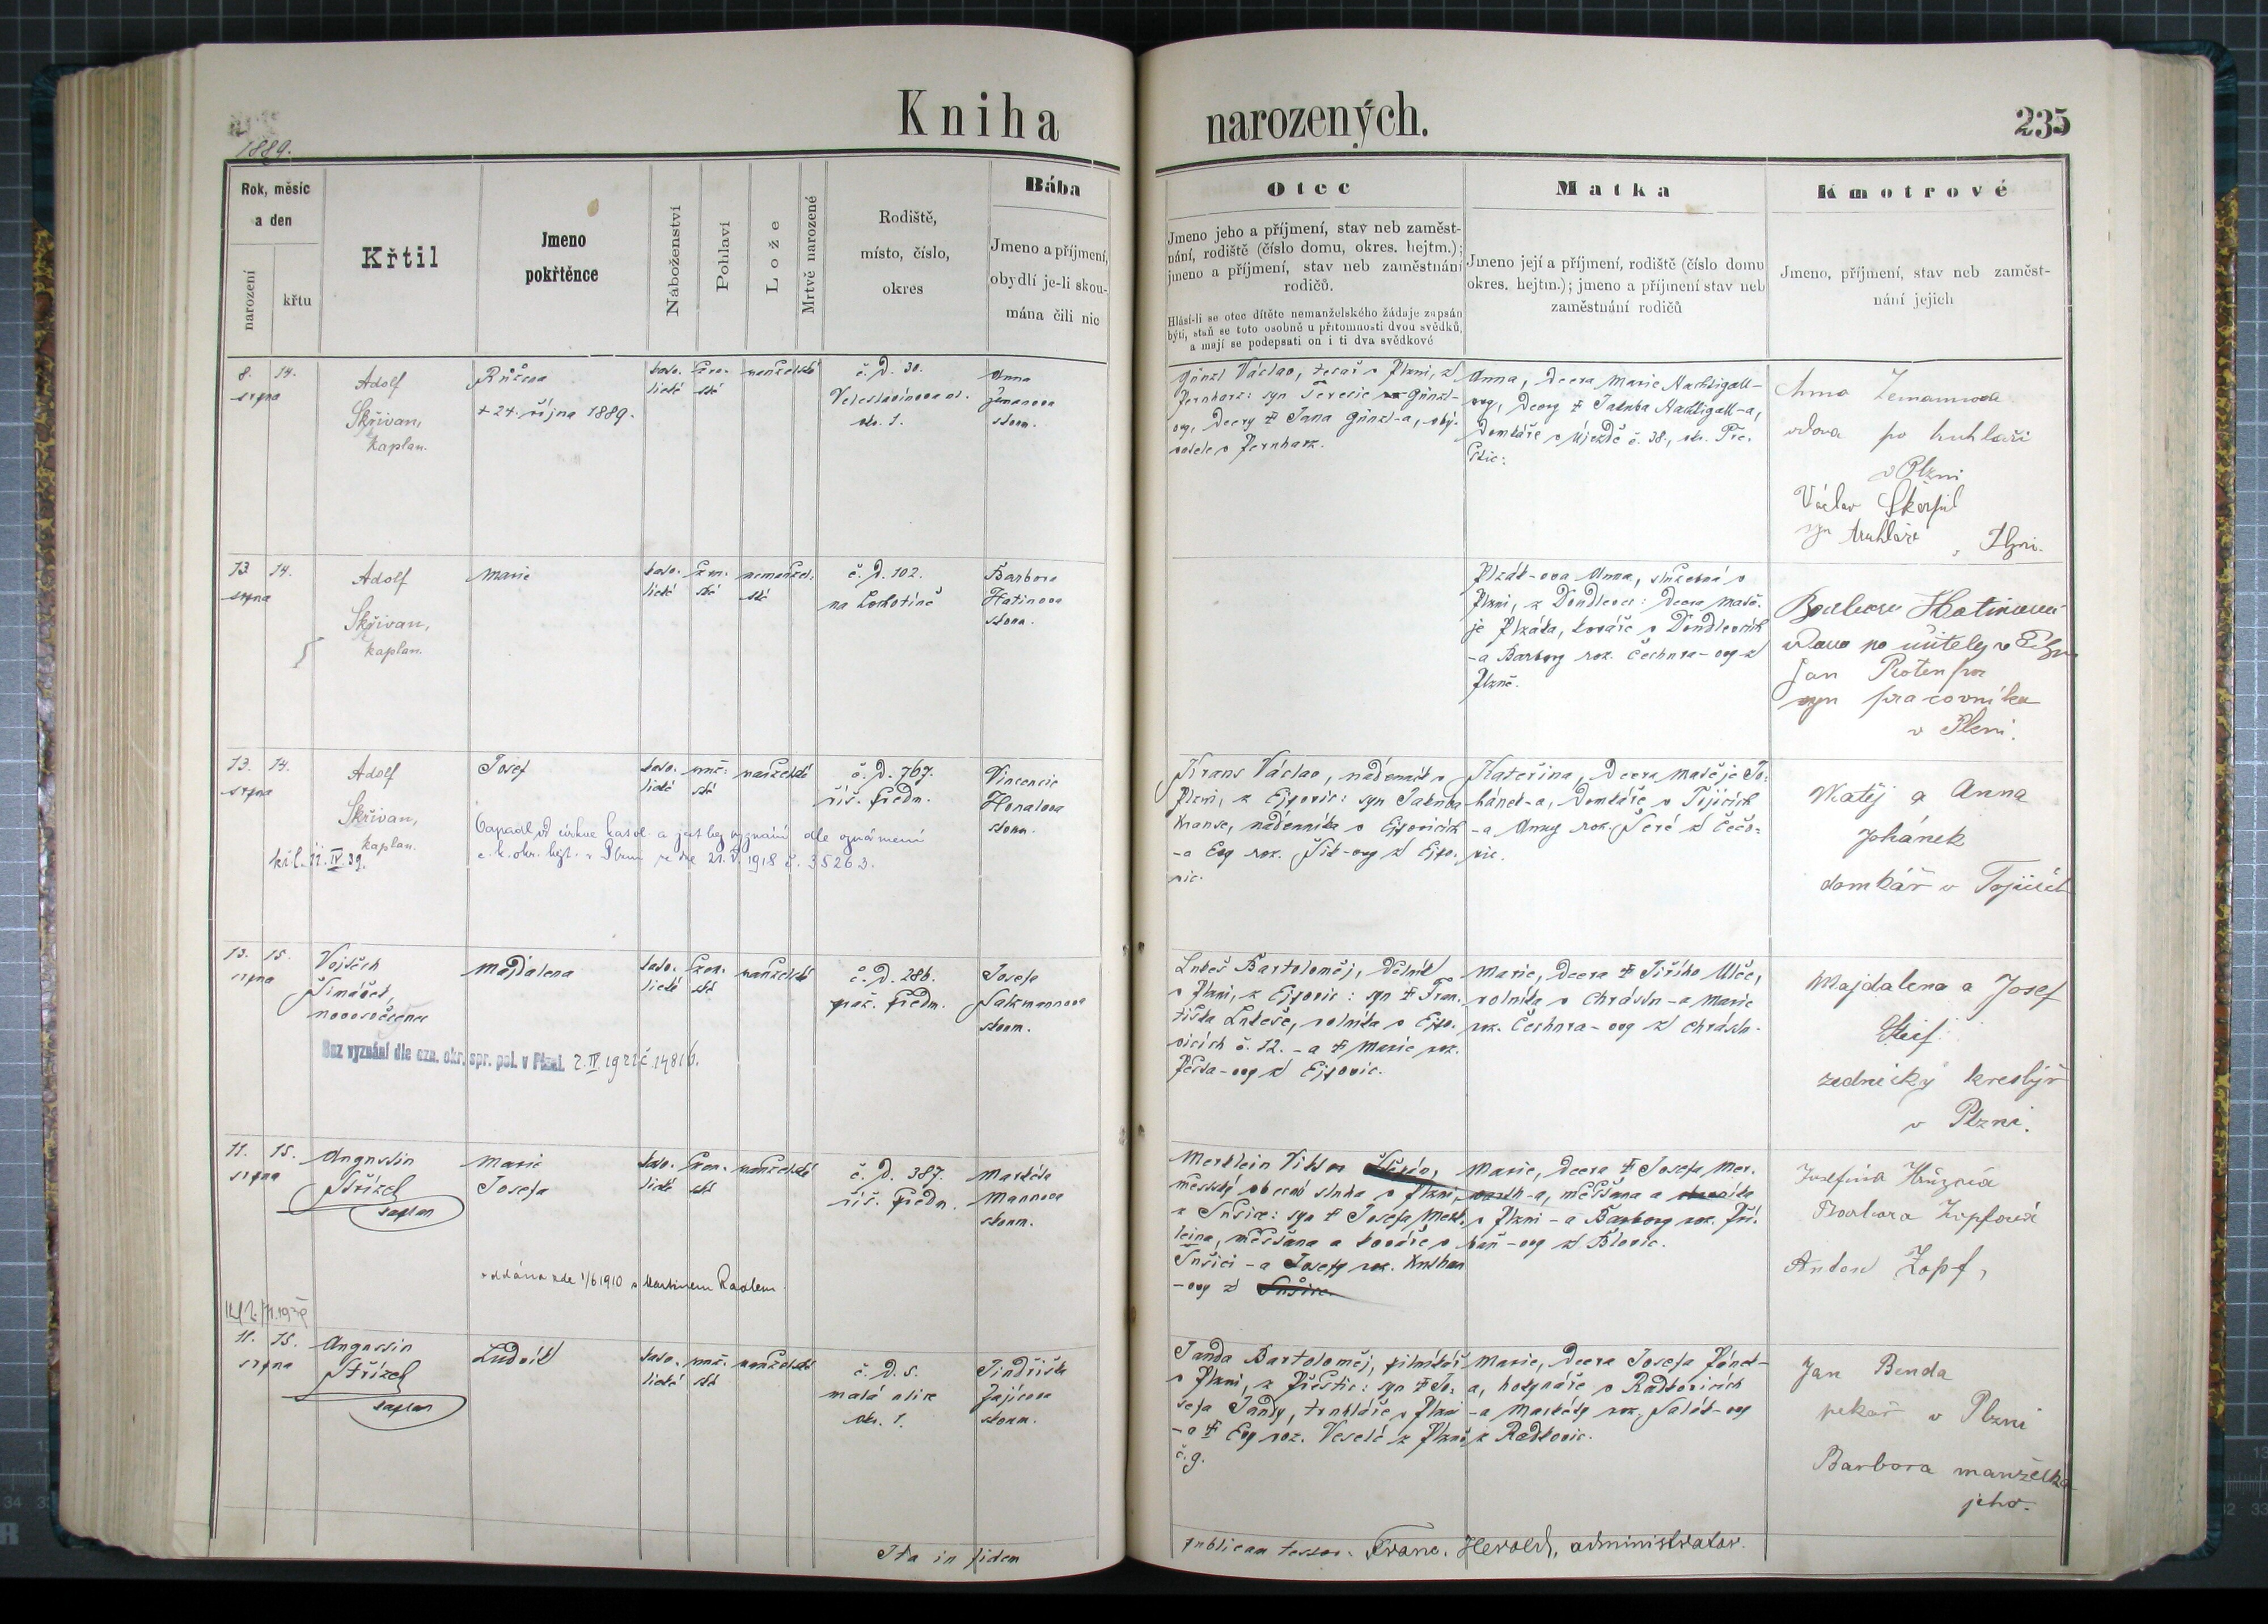 Kniha narozených.
235
1889.
Rok, měsíc
a den
narození
křtu
Křtil
Jmeno
pokřtěnce
Náboženství
Pohlaví
Lože
Mrtvě narozené
Rodiště,
místo, číslo,
okres
Bába
Jmeno a příjmení,
obydlí je-li skou-
mána čili nic
Otec
Jmeno jeho a příjmení, stav neb zaměst-
nání, rodiště (číslo domu, okres. hejtm.);
jmeno a příjmení, stav neb zaměstnání
rodičů.
Hlásí-li se otec dítěte nemanželského žádaje zapsán
býti, staň se toto osobně u přítomnosti dvou svědků,
a mají se podepsati on i ti dva svědkové
Matka
Jmeno její a příjmení, rodiště (číslo domu
okres. hejtm.); jmeno a příjmení stav neb
zaměstnání rodičů
Kmotrové
Jmeno, příjmení, stav neb zaměst-
nání jejich
8. 14.
srpna
Adolf
Skřivan,
kaplan.
Růžena
+ 24. října 1889.
kato-
lické
žen-
ské
manželské
č. d. 30.
Veleslavínova ul.
okr. 1.
Anna
Zemanova
zkoum.
Günzl Václav, tesař v Plzni, z
Pernharz: syn Terezie Günzl-
ovy, dcery † Jana Günzl-a, oby-
vatele v Pernharz.
Anna, dcera Marie Nachtigall-
ovy, dcery † Jakuba Nachtigall-a,
domkáře v Újezdě č. 38., okr. Pře-
štic.
Anna Zemannova
vdova po truhláři
v Plzni
Václav Škorpil
syn truhláře v Plzni.
13 14.
srpna
Adolf
Skřivan,
kaplan.
Marie
kato-
lické
žen-
ské
nemanžel-
ské
č. d. 102.
na Lochotíně
Barbora
Hatinova
zkoum.
Plzák-ova Anna, služebná v
Plzni, z Doudlevec: dcera Matě-
je Plzáka, kováře v Doudlevcích
-a Barbory roz. Čechura-ovy z
Plzně.
Barbora Hatinová
vdova po učiteli v Plzni
Jan
syn pracovníka
v Plzni.
13. 14.
srpna
Adolf
Skřivan,
kaplan.
Josef
kato-
lické
muž-
ské
manželské
č. d. 767.
říš. předm.
Vincencie
Honalova
zkoum.
Vypadl od církve katol. a jest bez vyznání dle oznámení
c. k. okr. hejt. v Plzni ze dne 21. V. 1918 č. 35263.
kř. l. 11. IV. 39.
Krans Václav, nádenník v
Plzni, z Ejpovic: syn Jakuba
Kranse, nádenníka v Ejpovicích
-a Evy roz. Šik-ovy z Ejpo-
vic.
Kateřina, dcera Matěje Jo-
hánek-a, domkáře v Trjicích
-a Anny roz. Šeré z Čečo-
vic.
Matěj a Anna
Johánek
domkář v
13. 15.
srpna
Vojtěch
Šimáček,
novosvěcenec
Majdalena
kato-
lické
žen-
ské
manželské
č. d. 286.
praž. předm.
Josefa
Salzmannova
zkoum.
Bez vyznání dle ozn. okr. spr. pol. v Plzni. 2. IV. 1921 č. 14816.
Lukeš Bartoloměj, dělník
v Plzni, z Ejpovic: syn † Fran-
tiška Lukeše, rolníka v Ejpo-
vicích č. 12. -a † Marie roz.
Pešta-ovy z Ejpovic.
Marie, dcera † Jiřího Ulče,
rolníka v Chrástu -a Marie
roz. Čechura-ovy z Chrástu.
Majdalena a Josef
zednický kreslíř
v Plzni.
11. 15.
srpna
Augustin
Střízek
kaplan
Marie
Josefa
kato-
lické
žen-
ské
manželské
č. d. 387.
říš. předm.
Markéta
Mannova
zkoum.
oddána zde 1/6 1910 s Martinem Raalem.
Merklein Viktor
městský obecní sluha v Plzni,
z Sušice: syn † Josefa Merk-
leina, měšťana a kováře v
Sušici -a Josefy roz. Knihan
-ovy z
Marie, dcera † Josefa Mer-
-a, měšťana a
v Plzni -a Barbory roz. Při-
báň-ovy z Blovic.
Josefina Hrůzová
Barbora Zopfová
Anton Zopf,
11. 15.
srpna
Augustin
Střízek
kaplan
Ludvík
kato-
lické
muž-
ské
manželské
č. d. 5.
malá ulice
okr. 1.
Jindřiška
Zajícova
zkoum.
Janda Bartoloměj, pilníkář
v Plzni, z Přeštic: syn † Jo-
sefa Jandy, truhláře v Plzni
-a † Evy roz. Veselé z Plzně
č. 9.
Marie, dcera Josefa Pánek-
a, hospodáře v Radkovicích
-a Markéty roz. Salák-ovy
z Radkovic.
Jan Benda
pekař v Plzni
Barbora manželka
jeho.
Ita in fidem publicam testor: Franc. Herold, administrator.